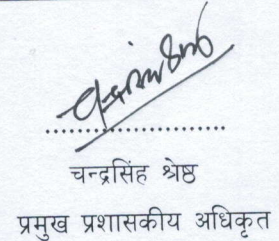 चन्द्रसिंह श्रेष्ठ
प्रमुख प्रशासकीय अधिकृत